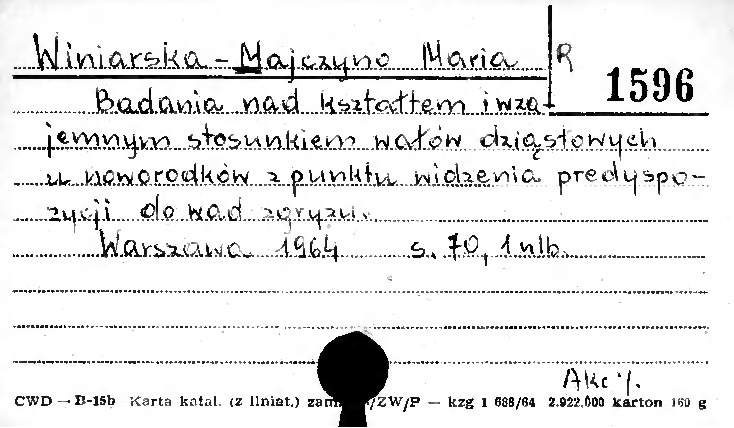 Winiarska-Majczyno Maria R 1596
Badania nad kształtem i wza-
jemnym stosunkiem wałów dziąsłowych
u noworodków z punktu widzenia predyspo-
zycji do wad zgryzu.
Warszawa 1964 s. 70, 1 nlb.
Akc
CWD — B-15b Karta katal. (z liniat.) /ZW/P — kzg 1 688/64 2.922.000 karton 160 g